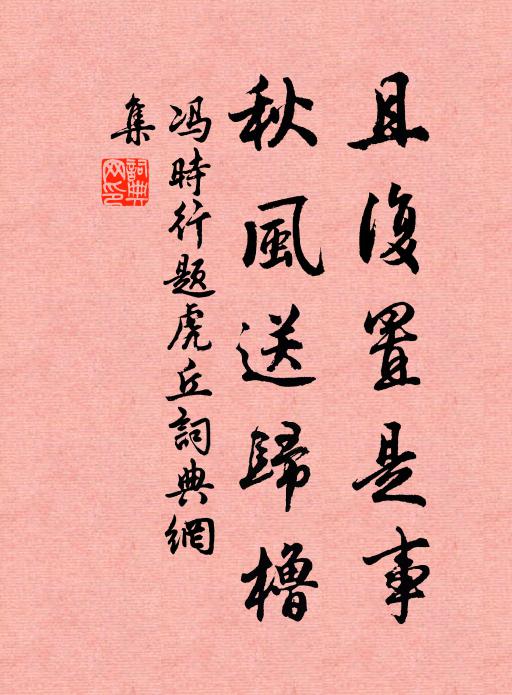 且復置是事
秋風送歸櫓
冯時行题虎丘詞典網
集
詞典網印